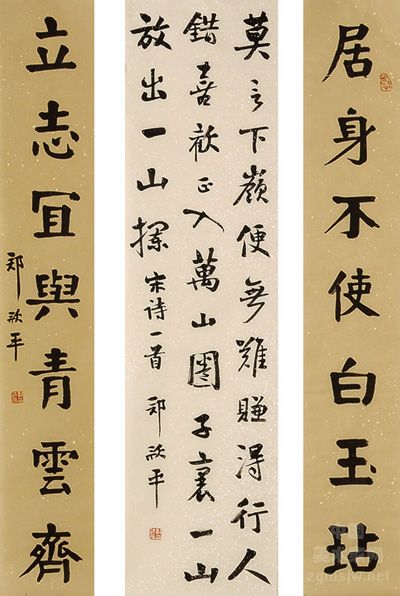 居身不使白玉玷
莫言下嶺便無難賺得行人
錯喜歡正入萬山圈子裏一山
放出一山攔 宋诗一首 郑 平
立志冝與青雲齊
郑 平
zgmsjw.net